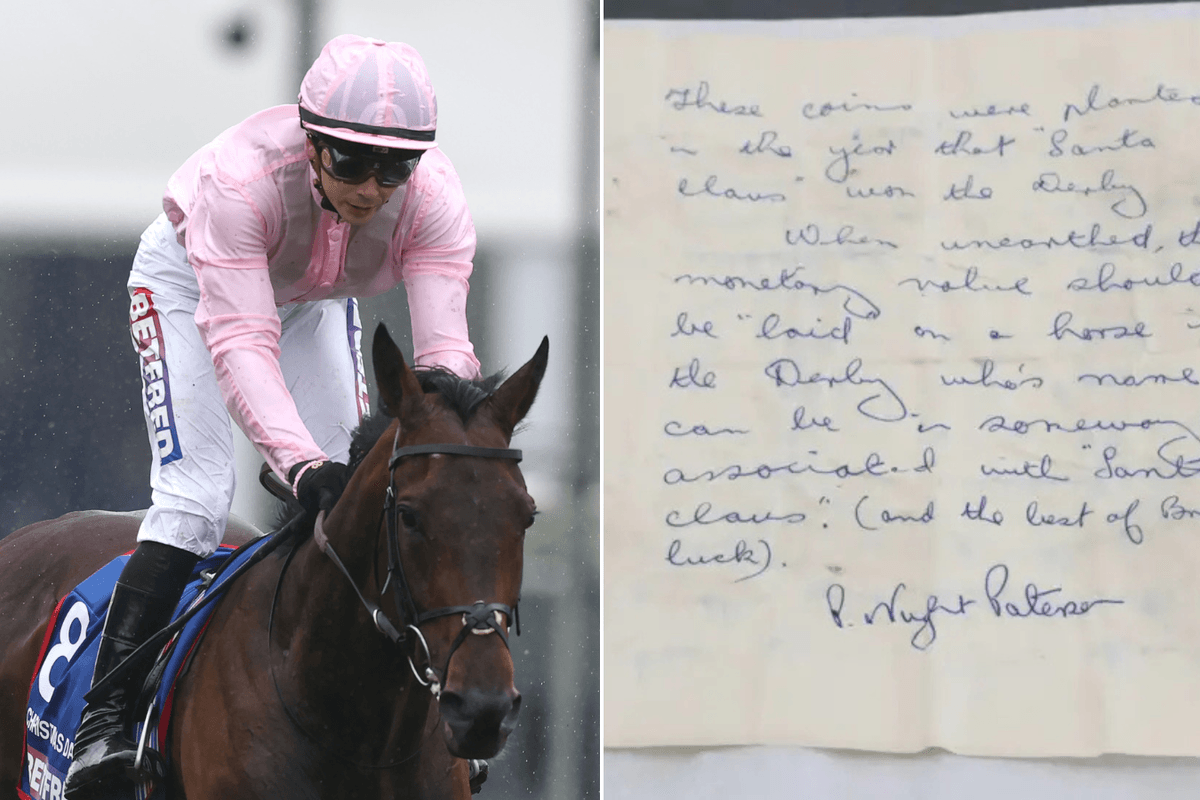 BETFRED
8
CHRISTMAS DA
BETFR
These coins were plante
in the year that "Santa
claus" won the Derby
When unearthed, t
monetary value should
be "laid" on a horse
the Derby who's name
can be in someway
associated with "Sant
claus". (and the best of
luck).
P. Paterson